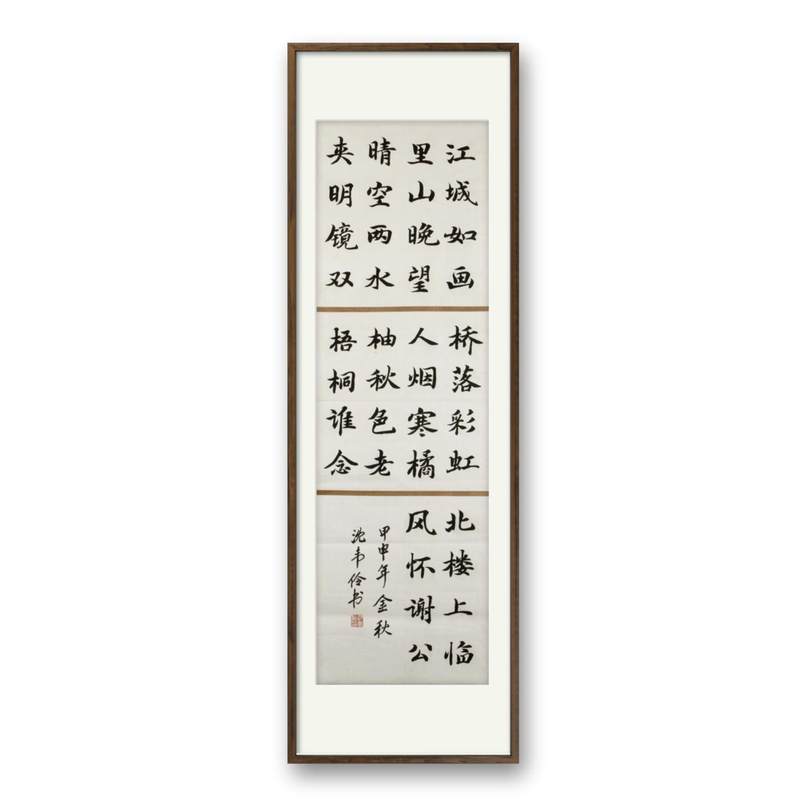 江城如画
里山晚望
晴空两水
夹明镜双
桥落彩虹
人烟寒橘
柚秋色老
梧桐谁念
北楼上临
风怀谢公
甲申年金秋
沈韦伶书